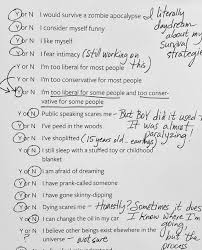 Y or N I would survive a zombie apocalypse I literally
Y or N I consider myself funny daydream
Y or N I like myself about my
Y or N I fear intimacy (still working on survival
this) strategies
Y or N I'm too liberal for most people
Y or N I'm too conservative for most people
Y or N I'm too liberal for some people and too conser-
vative for some people
Y or N Public speaking scares me - But BOY did it used to!
Y or N I've peed in the woods It was almost
Y or N I've shoplifted (15 years old - earrings) paralyzing!
Y or N I still sleep with a stuffed toy or childhood
blanket
Y or N I am afraid of clowns
Y or N I have prank-called someone
Y or N I have gone skinny-dipping
Y or N Dying scares me - Honestly? Sometimes it does
Y or N I can change the oil in my car I know where I'm
Y or N I believe other beings exist elsewhere in the going
universe - not sure but the
process